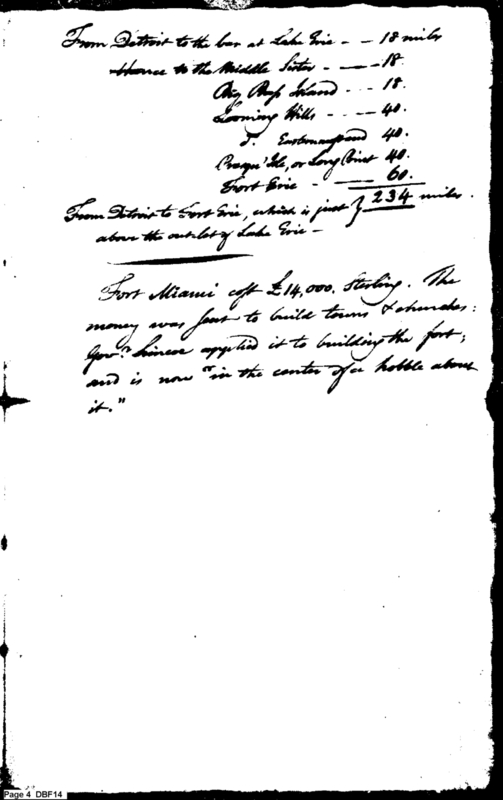 From Detroit to the bar at Lake Erie - - 18 miles
thence to the Middle Sister - - - 18.
Big Bass Island - - - 18.
Looming Hills - - - - 40.
T. 40.
Presqu' Isle, or Long Point 40.
Fort Erie - - - 60.
From Detroit to Fort Erie, which is just } 234 miles.
above the outlet of Lake Erie -
Fort Miami cost £14,000. Sterling. The
money was sent to build towns & churches:
Govr. Simcoe applied it to building the fort,
and is now "in the center of a hobble about
it."
Page 4 DBF14